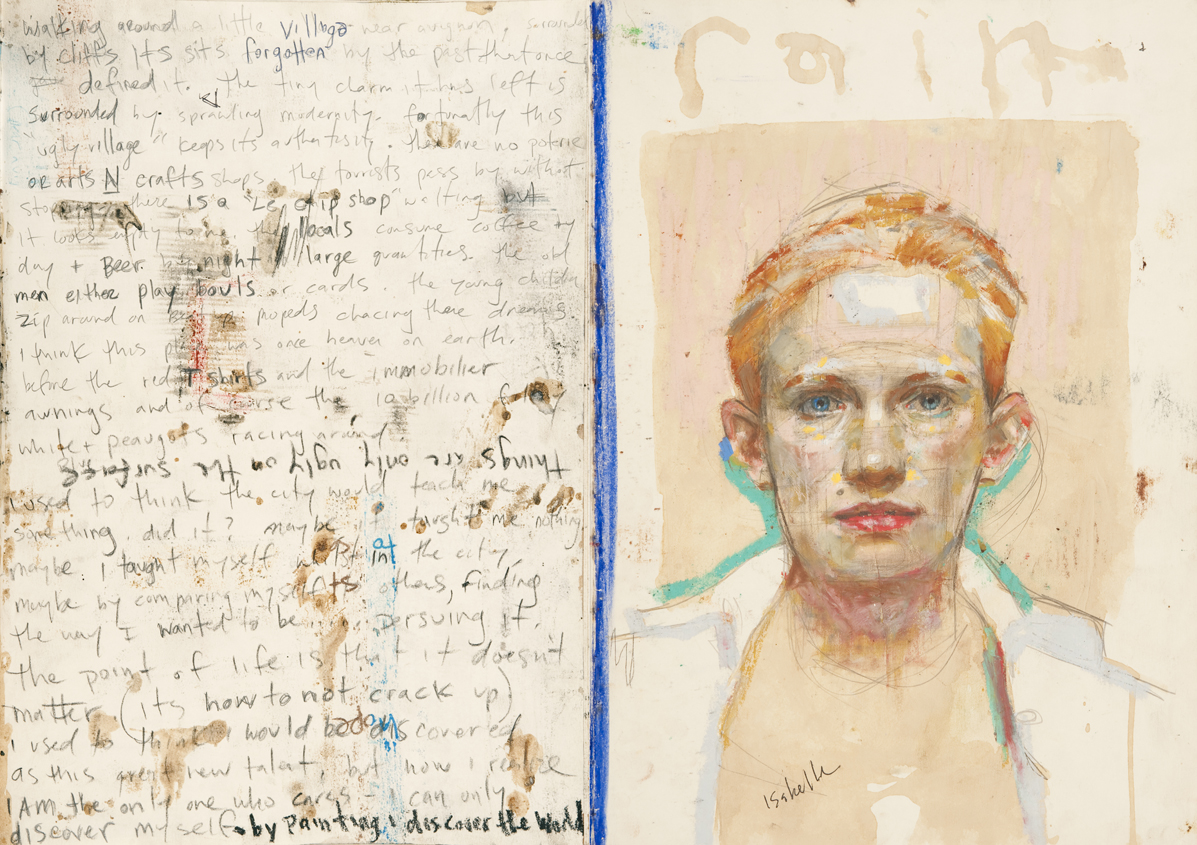 walking around a little village near avignon, surrounded
by cliffs its sits forgotten by the past that once
defined it. the tiny charm it has left is
surrounded by sprawling modernity. fortunatly this
"ugly village" keeps its authentisity. there are no poterie
or arts N crafts shops the tourists pass by without
there is a "Le chip shop" waiting but
it looks empty to me the locals consume coffee by
day + Beer by night in large quantities. the old
men either play bouls or cards. the young
zip around on mopeds chacing there dreams.
i think this place was once heaven on earth.
before the red T shirts and the immobilier
awnings and of corse the 10 billion
white peaugots racing around.
things are only ugly on the surface
i used to think the city would teach me
something. did it? maybe it taught me nothing
maybe i taught myself in the city,
maybe by comparing myself to others, finding
the way I wanted to be persuing it.
the point of life is that it doesn't
matter (its how to not crack up)
i used to think i would be discovered
as this great new talent, but now i realize
i AM the only one who cares - i can only
discover myself. by painting i discover the world
rain
isabelle